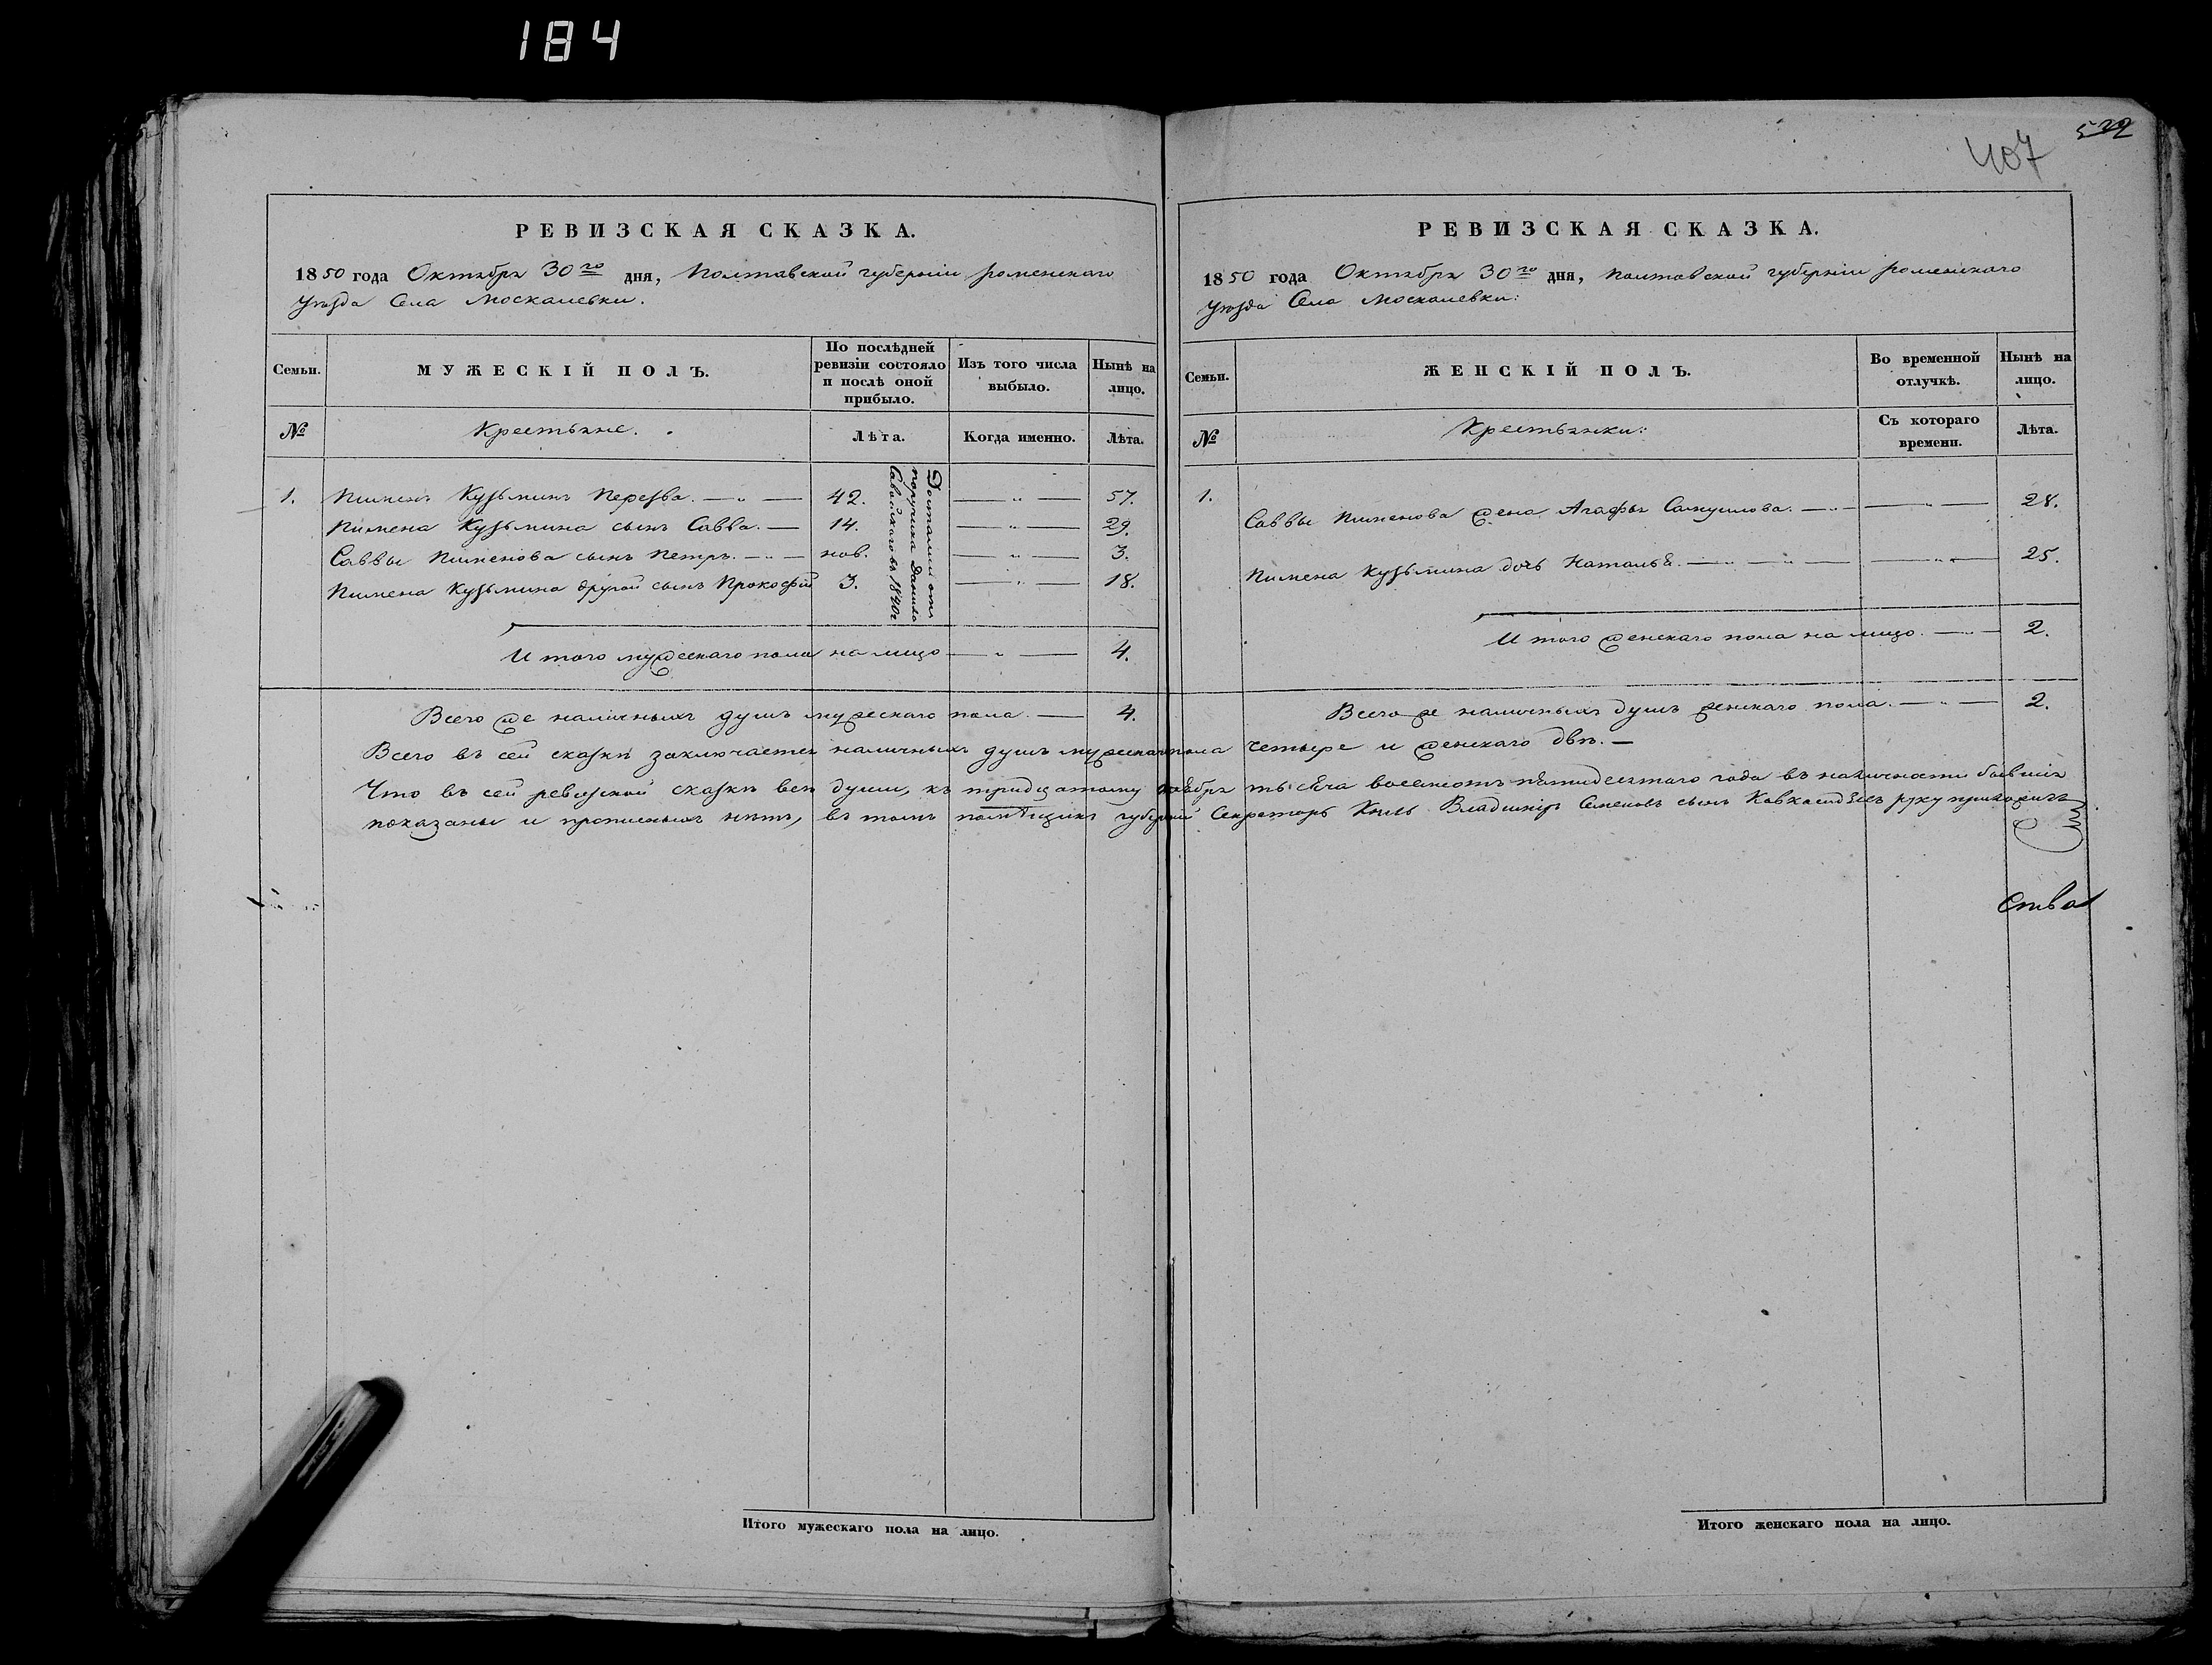 184
407
522
РЕВИЗСКАЯ СКАЗКА.
1850 года Октября 30го дня, Полтавской губерніи роменскаго
уѣзда Села Москалевки.
Семьи.
МУЖЕСКІЙ ПОЛЪ.
По послѣдней ревизіи состояло и послѣ оной прибыло.
Изъ того числа выбыло.
Нынѣ на лицо.
№
Крестьяне.
Лѣта.
Когда именно.
Лѣта.
1. Пименъ Кузьминъ Перезва. — „ — 42. — „ — 57.
Пимена Кузьмина сынъ Савва. — 14. — „ — 29.
Саввы Пименова сынъ Петръ. — „ — нов. — „ — 3.
Пимена Кузьмина другой сынъ Прокофій 3. — „ — 18.
Достались отъ
поручика Данила
въ 1840г
И того мужескаго пола на лицо — „ — 4.
Всего же наличныхъ душъ мужескаго пола. — 4.
РЕВИЗСКАЯ СКАЗКА.
1850 года Октября 30го дня, Полтавской губерніи роменскаго
уѣзда Села Москалевки:
Семьи.
ЖЕНСКІЙ ПОЛЪ.
Во временной отлучкѣ.
Нынѣ на лицо.
№
Крестьянки:
Съ котораго времени.
Лѣта.
1.
Саввы Пименова жена Агафья Самуилова. — „ — 28.
Пимена Кузьмина дочь Наталья. — „ — 25.
И того женскаго пола на лицо. — „ — 2.
Всего же наличныхъ душъ женскаго пола. — „ — 2.
Всего въ сей сказкѣ заключается наличныхъ душъ мужескаго пола четыре и женскаго двѣ. —
Что въ сей ревизской сказкѣ всѣ души, къ тридцатому ноября тысяча восемсотъ пятидесятаго года въ наличности бывшія
показаны и прописныхъ нѣтъ, въ томъ помѣщикъ губерній Секретарь Князь Владиміръ Семеновъ сынъ руку приложилъ
ства
Итого мужескаго пола на лицо.
Итого женскаго пола на лицо.